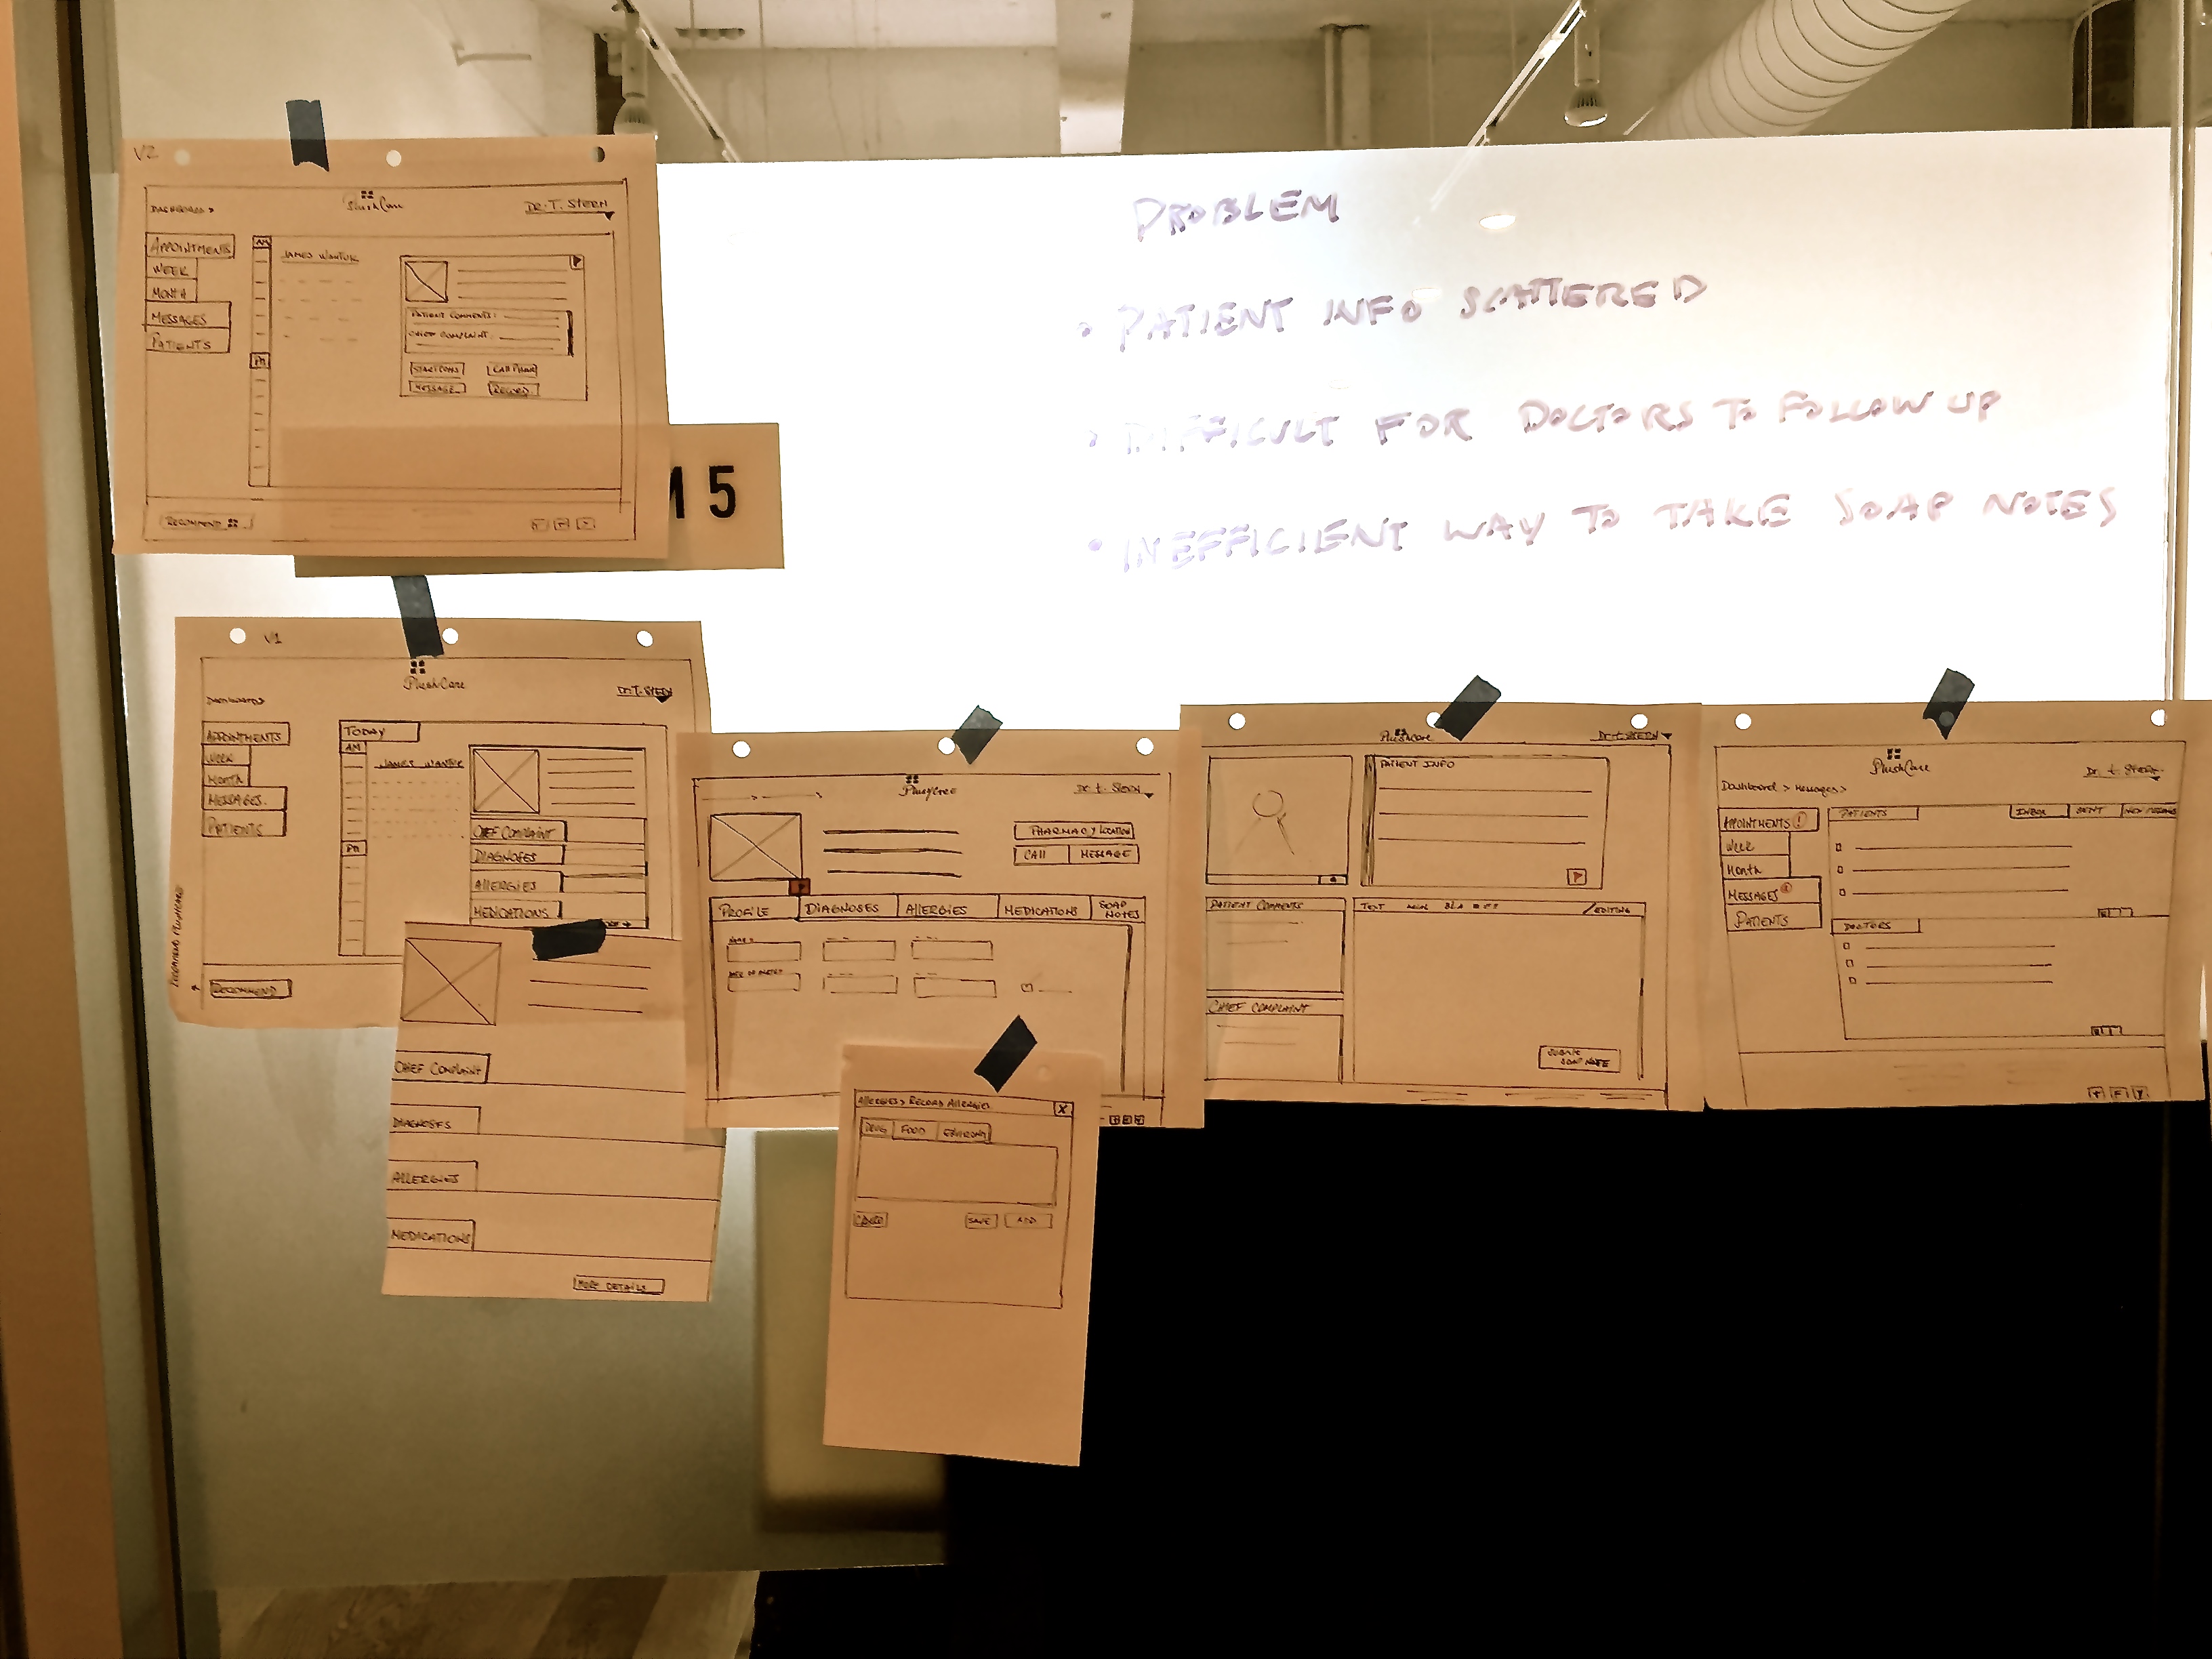 PROBLEM
• PATIENT INFO SCATTERED
• DIFFICULT FOR DOCTORS TO FOLLOW UP
• INEFFICIENT WAY TO TAKE SOAP NOTES
V2
DASHBOARD >
PlushCare
DR. T. STERN
APPOINTMENTS
WEEK
MONTH
MESSAGES
PATIENTS
AM
PM
JAMES
PATIENT COMMENTS:
CHIEF COMPLAINT:
CALL PHONE
MESSAGE
RECORD
RECOMMEND
5
V1
PlushCare
DR T. STERN
DASHBOARD >
APPOINTMENTS
WEEK
MONTH
MESSAGES
PATIENTS
TODAY
AM
JAMES
PM
CHIEF COMPLAINT
DIAGNOSES
ALLERGIES
MEDICATIONS
RECOMMEND
CHIEF COMPLAINT
DIAGNOSES
ALLERGIES
MEDICATIONS
MORE DETAILS
PlushCare
DR t. STERN
PHARMACY LOCATION
CALL
MESSAGE
PROFILE
DIAGNOSES
ALLERGIES
MEDICATIONS
SOAP NOTES
ALLERGIES > RECORD ALLERGIES
X
DRUG
FOOD
SAVE
ADD
PlushCare
DR. t. STERN
PATIENT INFO
PATIENT COMMENTS
TEXT
EDITING
CHIEF COMPLAINT
SUBMIT
SOAP NOTE
PlushCare
Dr. t. STERN
Dashboard > Messages >
APPOINTMENTS !
Week
Month
MESSAGES
PATIENTS
PATIENTS
INBOX
SENT
DOCTORS